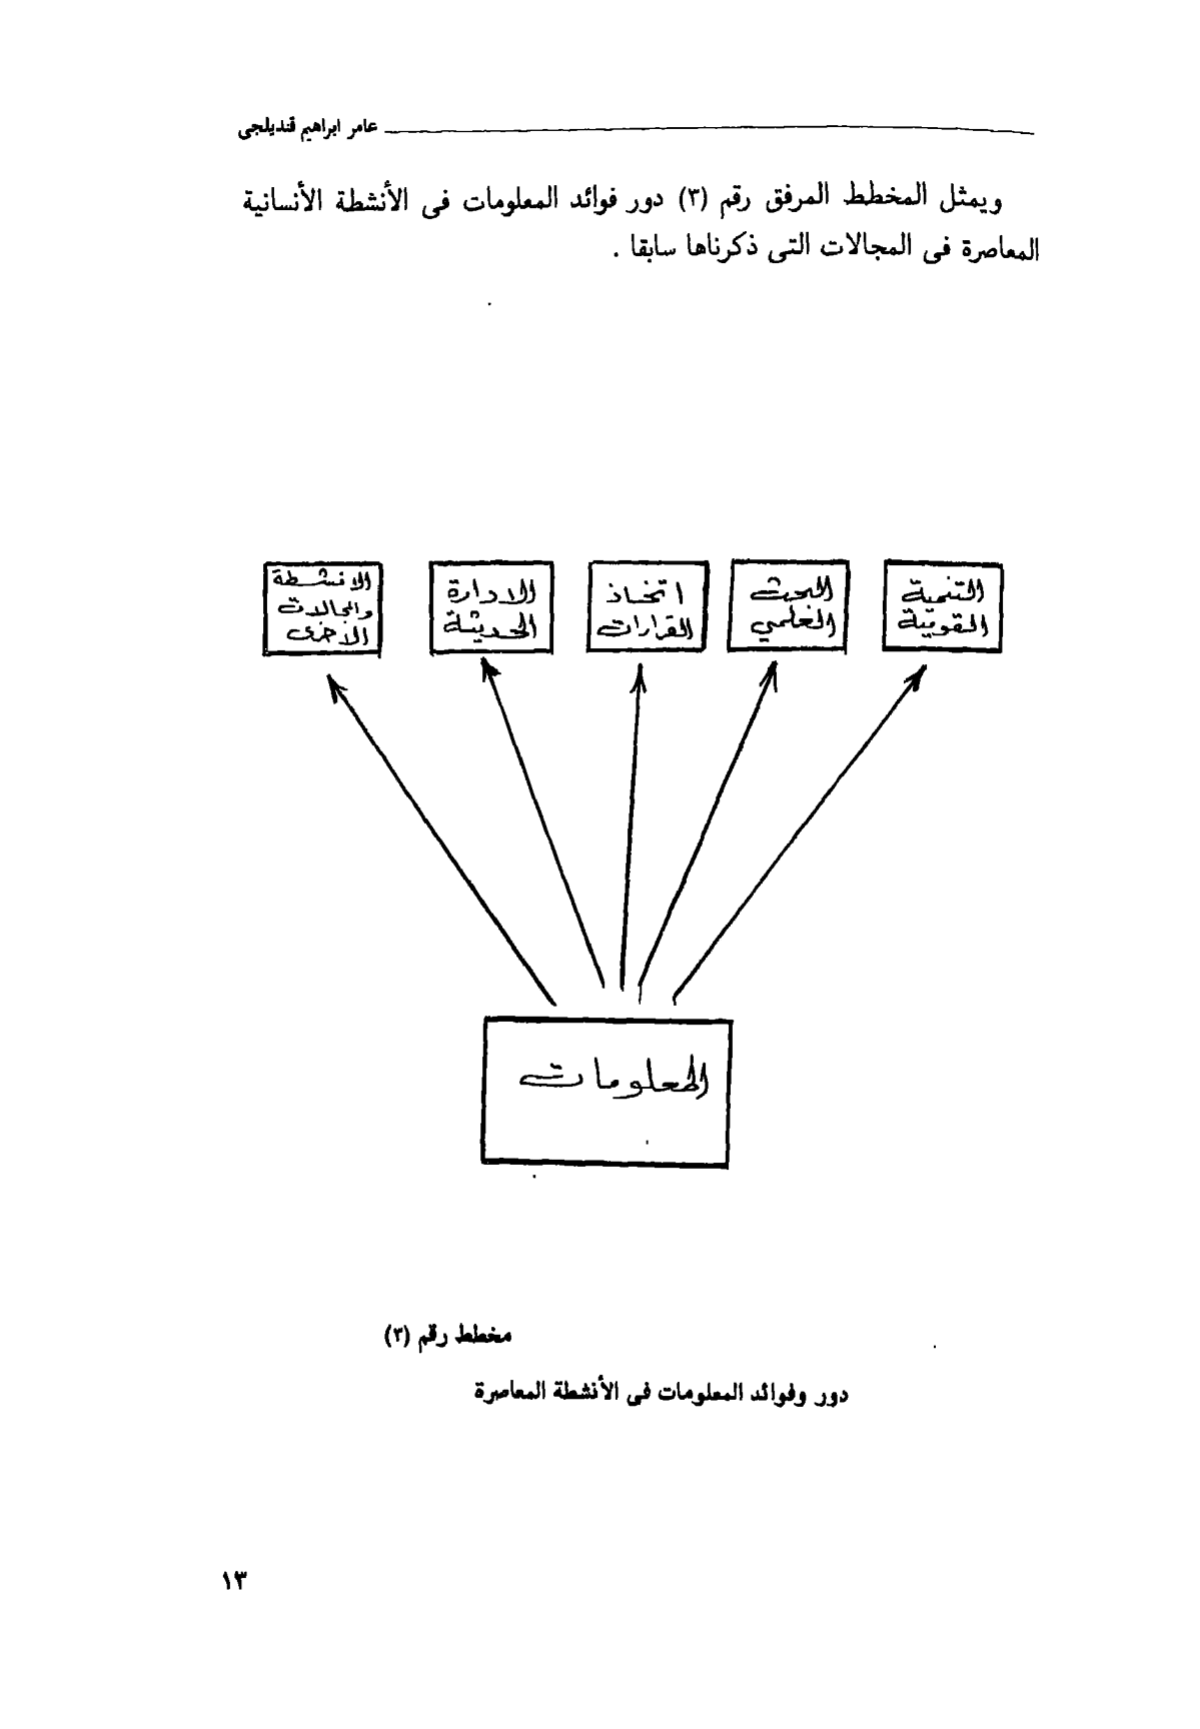 عامر ابراهيم قنديلجى
ويمثل المخطط المرفق رقم (٣) دور فوائد المعلومات فى الأنشطة الأنسانية
المعاصرة فى المجالات التى ذكرناها سابقا .
التنمية
القومية
البحث
العلمي
اتخاذ
القرارات
الادارة
الحديثة
الانشطة
والمجالات
الأخرى
المعلومات
مخطط رقم (٣)
دور وفوائد المعلومات فى الأنشطة المعاصرة
١٣